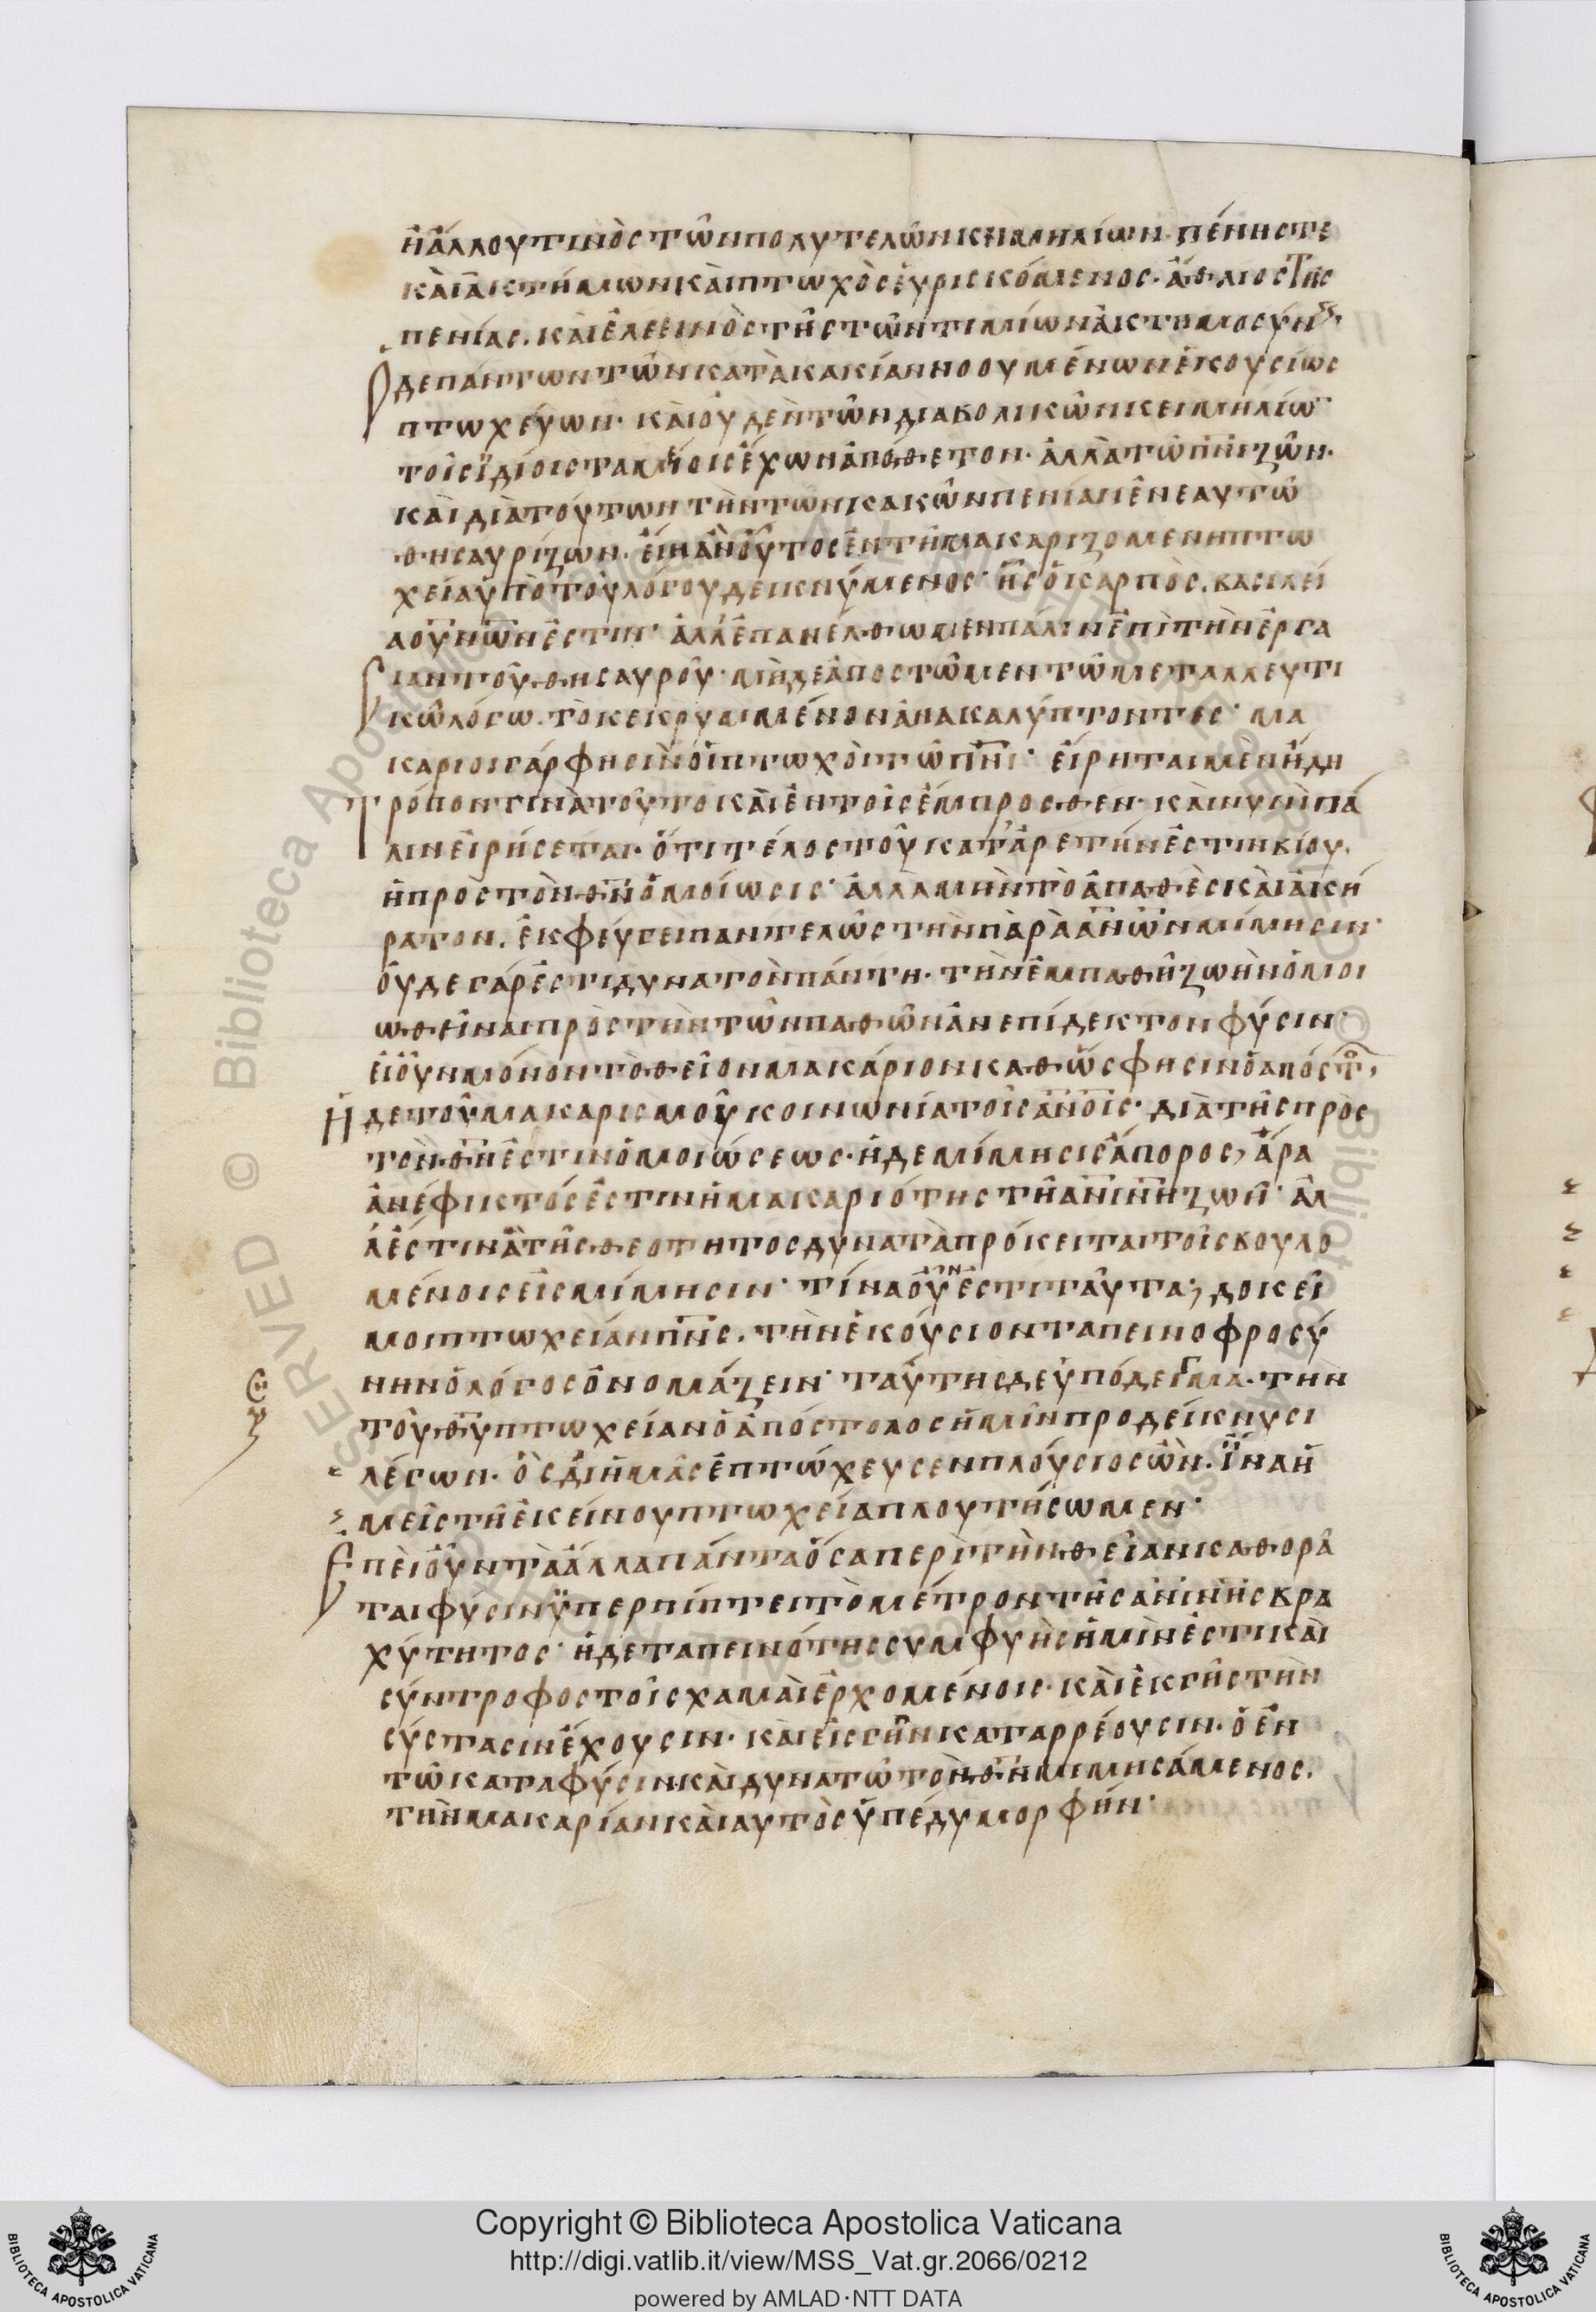 ἢ ἄλλου τινὸς τῶν πολυτελῶν κειμηλίων· πένης τε
καὶ ἀκτήμων καὶ πτωχὸς εὑρισκόμενος· ἄθλιος τῆς
πενίας. καὶ ἐλεεινὸς τῆς τῶν τιμίων ἀκτημοσύνης·
Ὁ δε πάντων τῶν κατὰ κακίαν νοουμένων ἑκουσίως
πτωχεύων· καὶ οὐδὲν τῶν διαβολικῶν κειμηλίω
τοῖς ἰδίοις ταμείοις ἔχων ἀπόθετον· ἀλλὰ τῶ πνι ζῶν·
καὶ διὰ τούτων τὴν τῶν κακῶν πενίαν ἐν εαυτῶ
θησαυρίζων. εἴη ἂν οὗτος ἐν τῆ μακαριζομενη πτω
χεία ὑπὸ τοῦ λόγου δεικνύμενος· ἧς ὁ καρπὸς. βασιλεί
α οὐνῶν ἐστιν· ἀλλ' ἐπανέλθωμεν πάλιν ἐπὶ τὴν ἐργα
Σίαν τοῦ θησαυροῦ· μὴδε ἀποστῶμεν τῶ μεταλλευτι
κῶ λόγω. τὸ κεκρυμμένον ἀνακαλύπτοντες· μα
καριοι γάρ φησιν οἱ πτωχὸι τῶ πνι· εἴρηται μεν ἤδη
Τρόπον τινὰ τοῦτο καὶ ἐν τοῖς ἔμπροσθεν· καὶ νυν πά
λιν εἰρήσεται· ὅτι τέλος τοῦ κατ' ἀρετήν ἐστιν βίου.
ἡ πρὸς τὸν θν ὁμοίωσις· ἀλλα μὴν τὸ ἀπαθὲς καὶ ἀκή
ρατον. ἐκφεύγει παντελῶς τὴν παρὰ ἀνων μίμησιν·
ὀυδε γάρ ἐστι δυνατὸν πάντη· τὴν ἐμπαθῆ ζωὴν ὁμοι
ωθεῖναι πρὸς τὴν τῶν παθῶν ἀνεπίδεκτον φύσιν·
εἰ οὖν μόνον τὸ θεῖον μακάριον καθώς φησιν ὁ απόστο,
Ἡ δε τοῦ μακαρισμοῦ κοινωνία τοῖς ἀνοις· διὰ τῆς πρὸς
τὸν θν ἐστιν ὁμοιώσεως· ἡ δε μίμησις ἄπορος, ἄρα
ἀνέφικτός ἐστιν ἡ μακαριότης τῆ ἀνινη ζωῆ· ἀλ
λ' ἔστιν ἃ τῆς θεοτητος δυνατὰ πρόκειται τοῖς βουλο
μένοις εἰς μίμησιν· τίνα οὖν ἐστι ταῦτα; δοκεῖ
μοι πτωχείαν πνς. τὴν ἑκούσιον ταπεινοφροσύ
νην ὁ λόγος ὀνομάζειν· ταύτης δε ὑπόδεγμα· τὴν
τοῦ θυ πτωχείαν ὁ ἀπόστολος ἡμῖν προδείκνυσι
λέγων· ὃς δι' ἡμᾶς ἐπτώχευσεν πλούσιος ὢν. ἵνα ἡ
μεῖς τῆ ἐκείνου πτωχεία πλουτήσωμεν·
Ἐπεὶ οὖν τὰ ἄλλα πάντα ὅσα περὶ τὴν θείαν καθορᾶ
ται φύσιν ὑπερπίπτει τὸ μέτρον τῆς ἀνινης βρα
χύτητος· ἡ δε ταπεινότης συμφυὴς ἡμὶν ἐστι καὶ
σύντροφος τοῖς χαμαὶ ἐρχομένοις· καὶ ἐκ γῆς τὴν
σύστασιν ἔχουσιν· καὶ εἰς γῆν καταρρέουσιν. ὁ ἐν
τῶ κατα φύσιν καὶ δυνατῶ τὸν θν μιμησάμενος.
τὴν μακαρίαν καὶ αυτὸς ὑπέδυ μορφήν·
Copyright © Biblioteca Apostolica Vaticana
http://digi.vatlib.it/view/MSS_Vat.gr.2066/0212
powered by AMLAD·NTT DATA
BIBLIOTECA APOSTOLICA VATICANA
BIBLIOTECA APOSTOLICA VATICANA